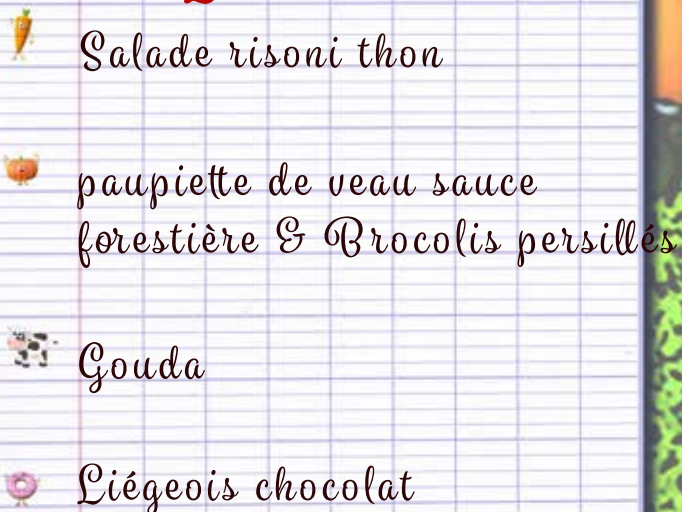 Salade risoni thon
paupiette de veau sauce
forestière & Brocolis persillés
Gouda
Liégeois chocolat